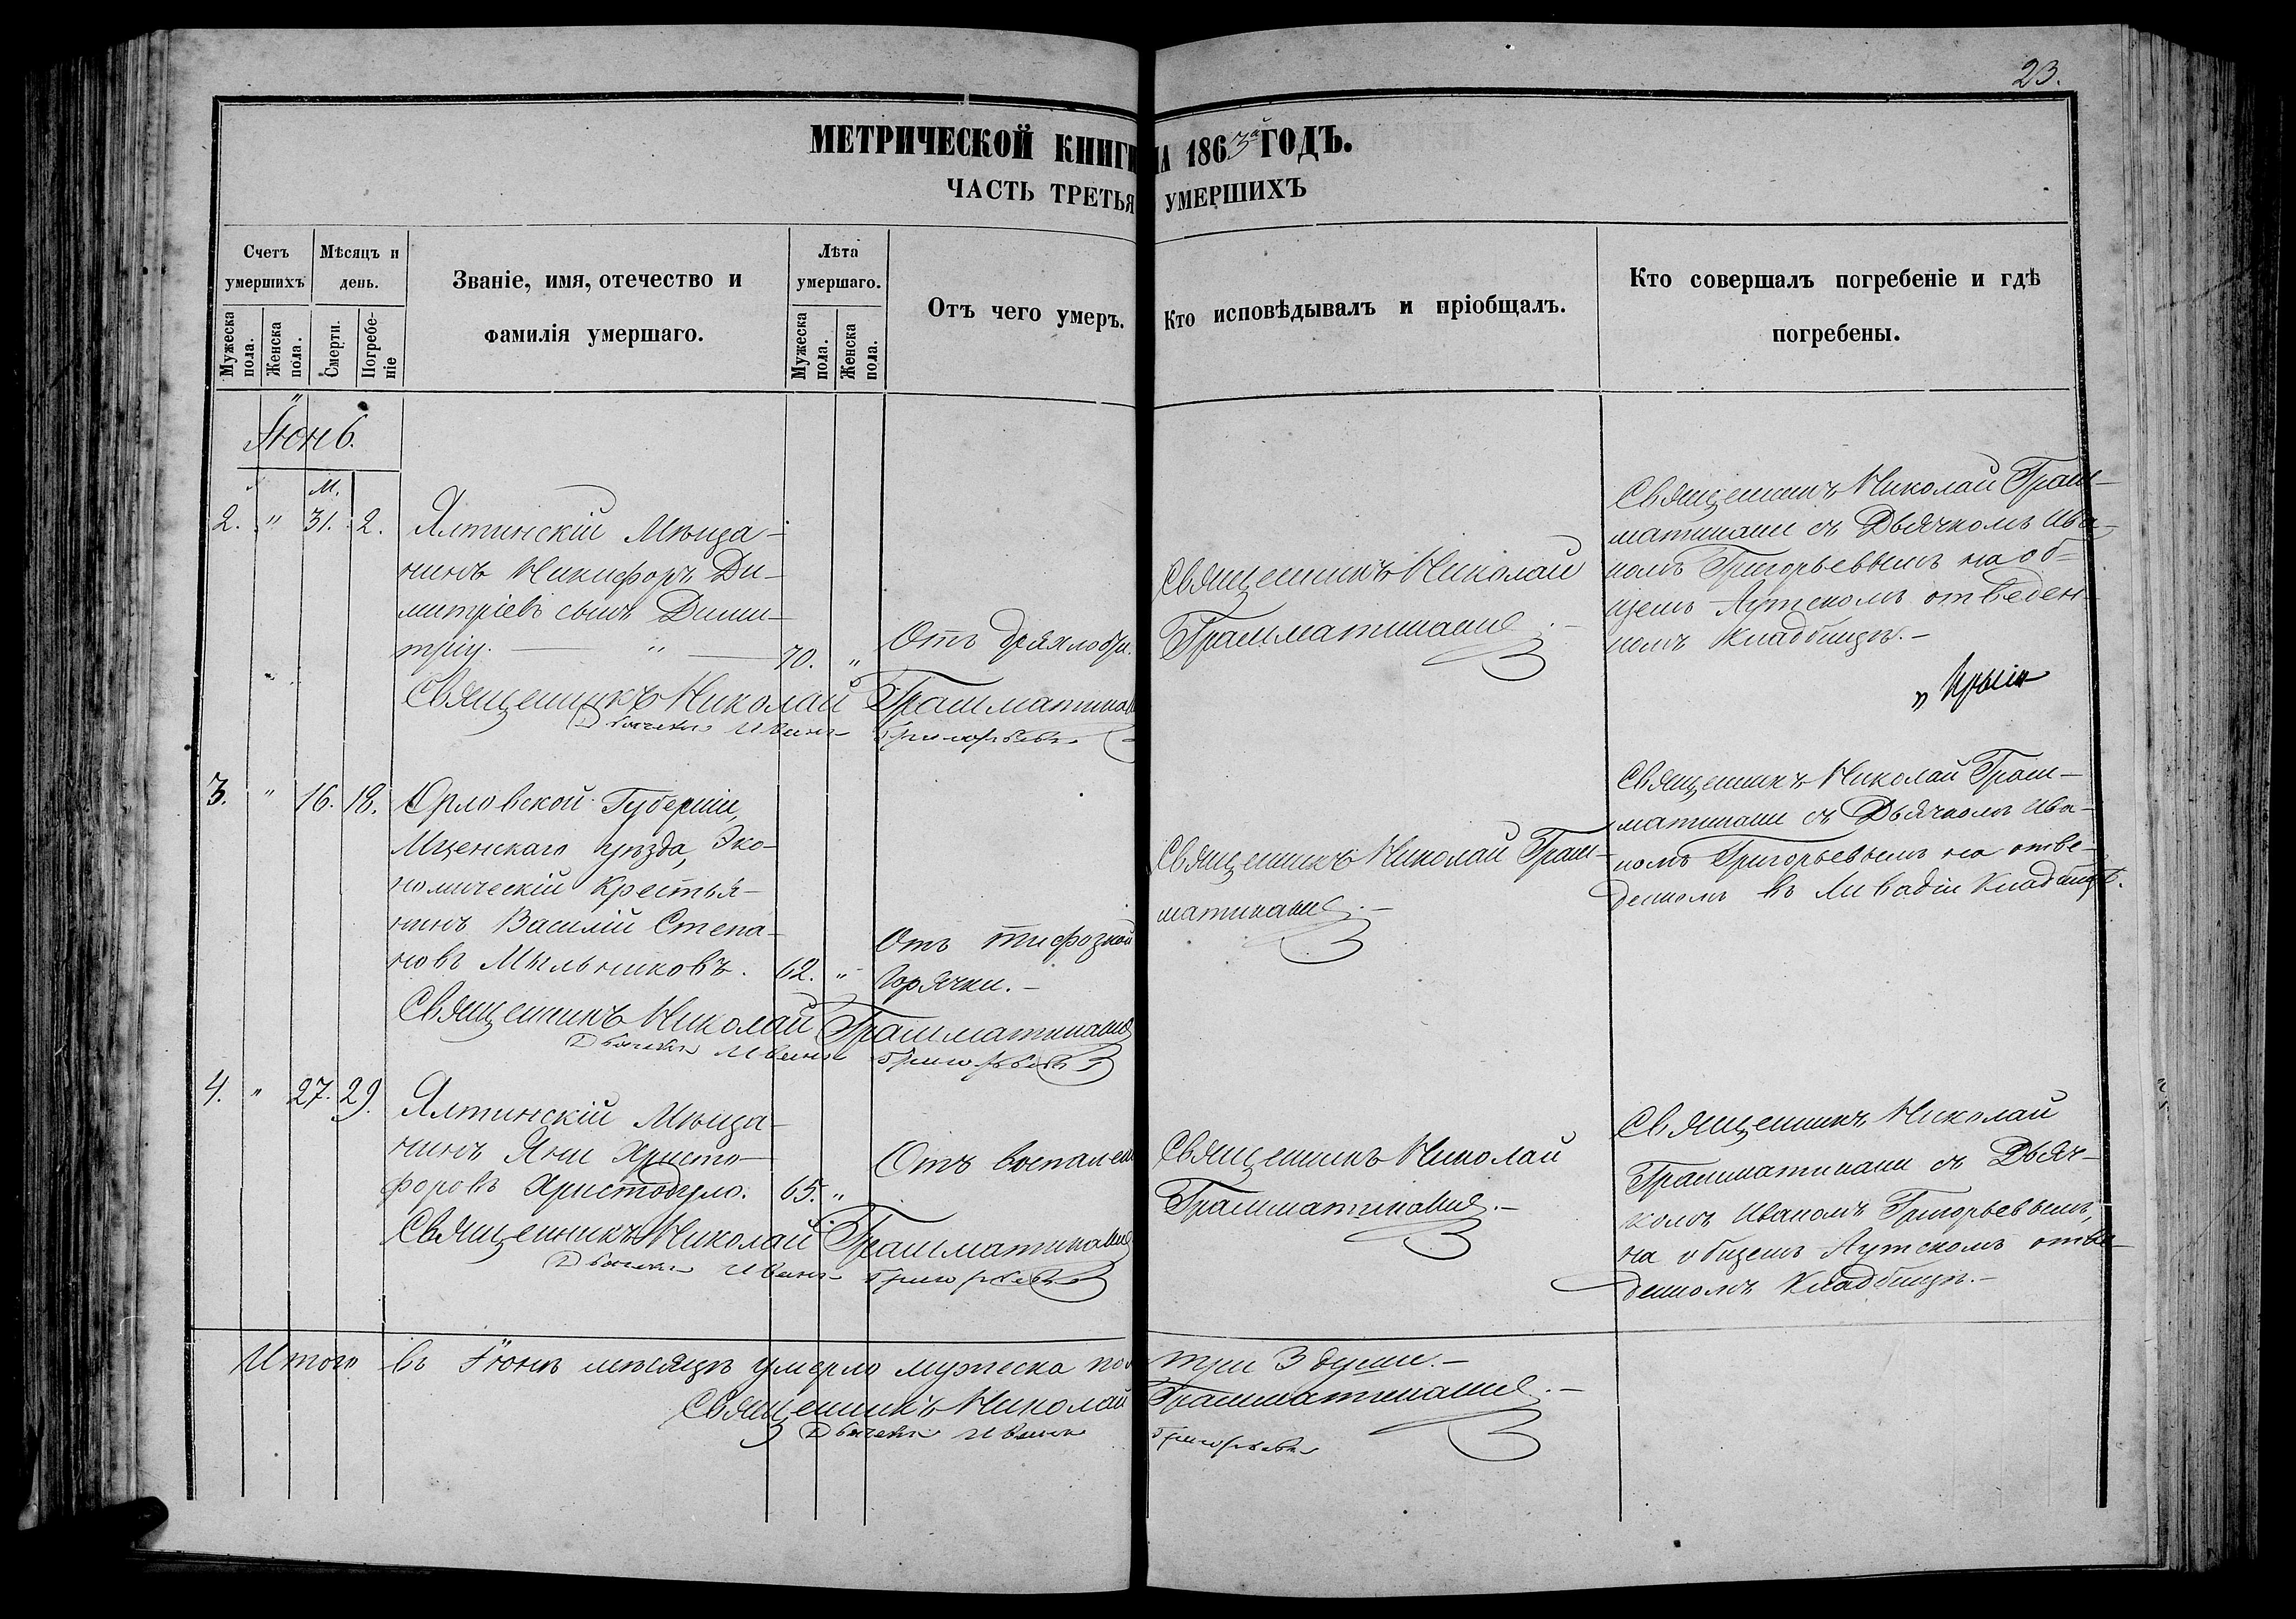 23.
МЕТРИЧЕСКОЙ КНИГИ НА 1863й ГОДЪ.
ЧАСТЬ ТРЕТЬЯ УМЕРШИХЪ
Счетъ умершихъ
Мѣсяцъ и день.
Званіе, имя, отечество и фамилія умершаго.
Лѣта умершаго.
Отъ чего умеръ.
Кто исповѣдывалъ и пріобщалъ.
Кто совершалъ погребеніе и гдѣ погребены.
Мужеска пола.
Женска пола.
Смерти.
Погребеніе
Мужеска пола.
Женска пола.
Іюнь.
М.
2. " 31. 2.
Ялтинскій Мѣща-
нинъ Никифоръ Ди-
митріевъ сынъ Дими-
тріу. — " — 70. "
Отъ дряхлости.
Священникъ Николай
Грамматикани.-
Священникъ Николай Грам-
матикани съ Дьячкомъ Ива-
номъ Григорьевымъ на об-
щемъ Аутскомъ отведен-
номъ Кладбищѣ.-
Священникъ Николай Грамматикани
Дьячекъ Иванъ Григорьевъ
3. " 16. 18.
Орловской Губерніи,
Мценскаго уѣзда, Эко-
номическій Крестья-
нинъ Василій Степа-
новъ Мыльниковъ. 62. "
Отъ тифозной
горячки.-
Священникъ Николай Грам-
матикани.-
Священникъ Николай Грам-
матикани съ Дьячкомъ Ива-
номъ Григорьевымъ на отве-
денномъ въ Ливадіи Кладбищѣ.
Священникъ Николай Грамматикани
Дьячекъ Иванъ Григорьевъ
4. " 27. 29.
Ялтинскій Мѣща-
нинъ Яни Христо-
форовъ Христодуло. 65. "
Отъ воспален
Священникъ Николай
Грамматикани.-
Священникъ Николай
Грамматикани съ Дьяч-
комъ Иваномъ Григорьевымъ,
на общемъ Аутскомъ отве-
денномъ Кладбищѣ.-
Священникъ Николай Грамматикани
Дьячекъ Иванъ Григорьевъ
Итого въ Іюнѣ мѣсяцѣ умерло мужеска пол три 3 души.-
Священникъ Николай Грамматикани.-
Дьячекъ Иванъ Григорьевъ